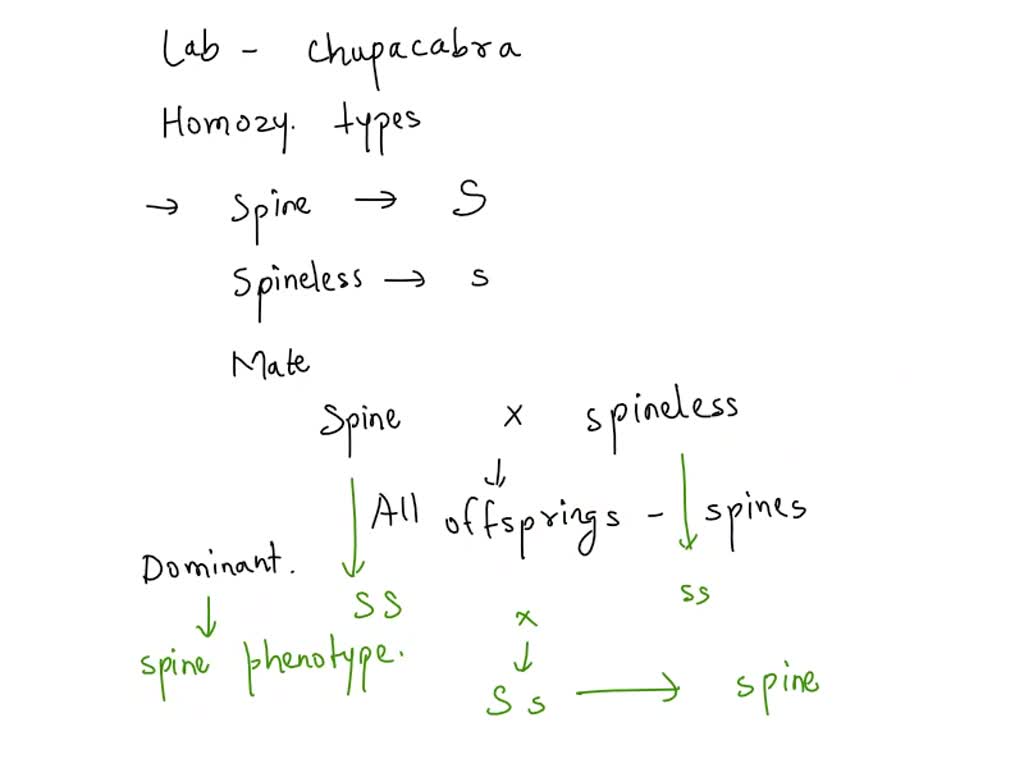 Lab - chupacabra
Homozy. types
→ Spine → S
Spineless → s
Mate
Spine x spineless
↓
All offsprings - spines
Dominant.
↓
SS x ss
↓
spine phenotype.
Ss → spine